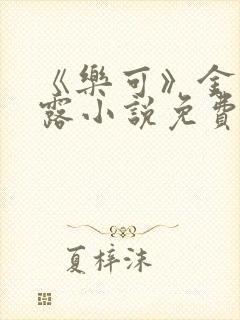 《樂可》金
露小說免費
夏梓沫